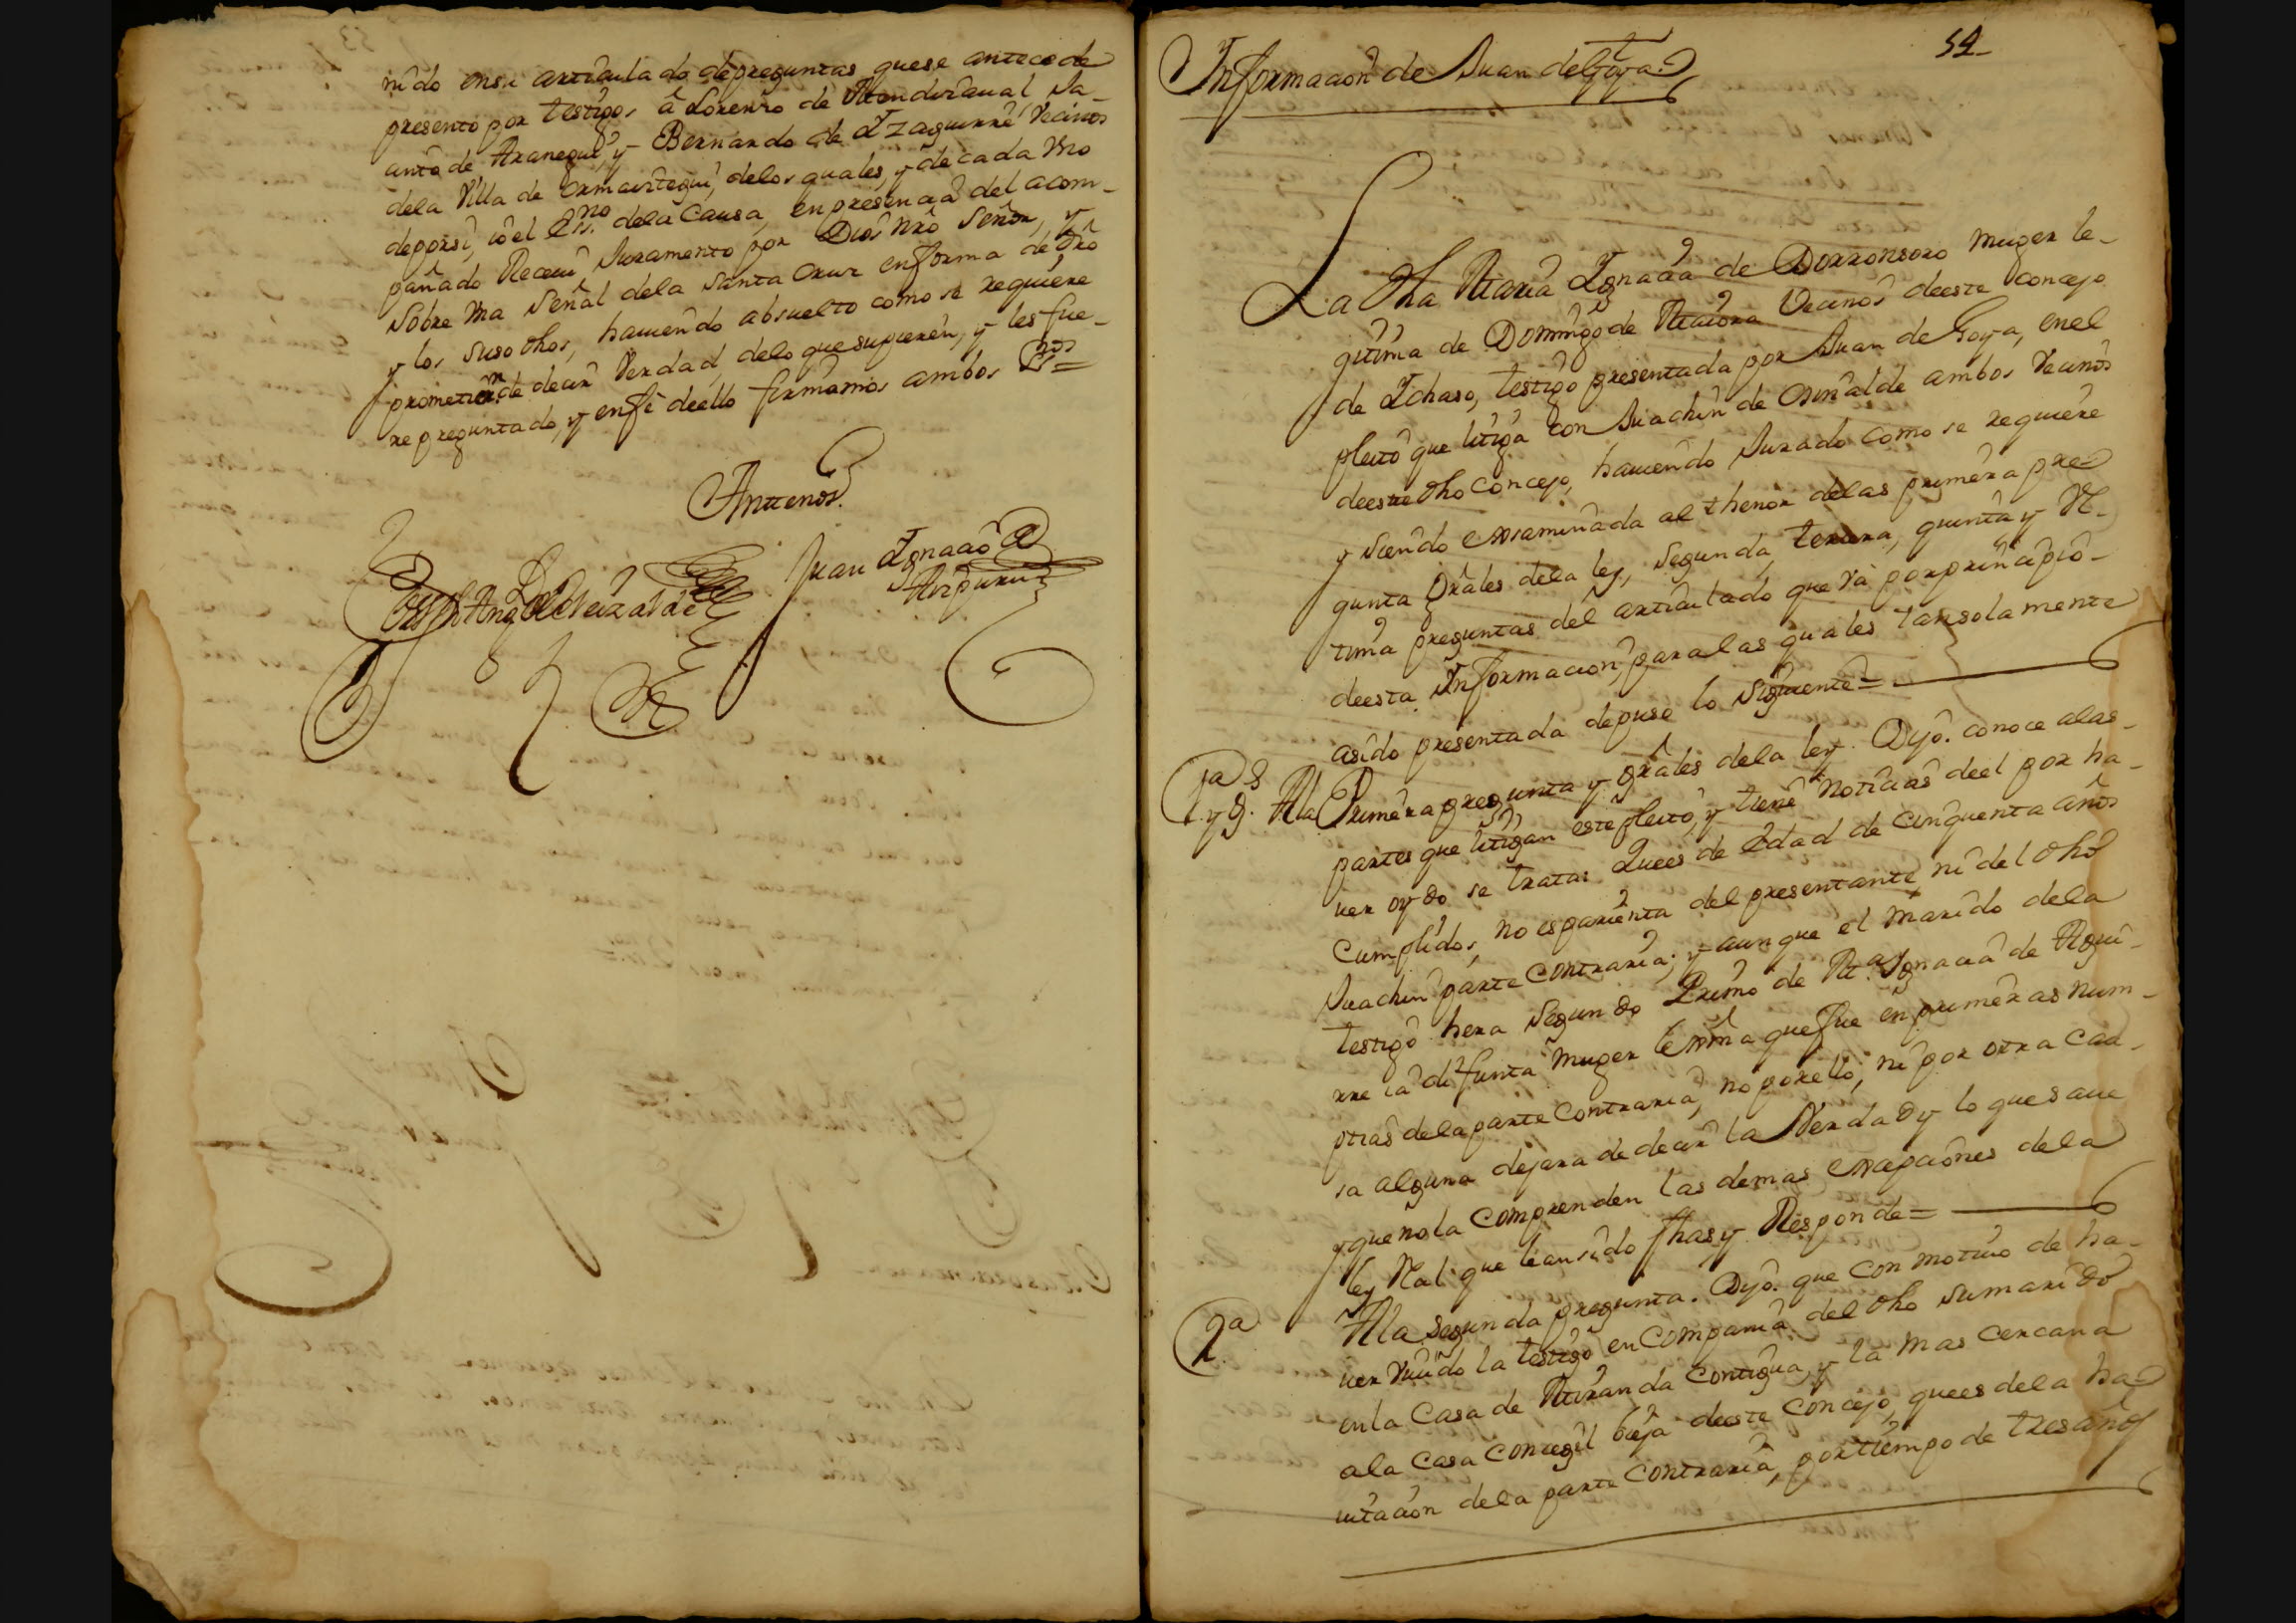 nido en su articulado de preguntas que se antecede
presento por testigos â Lorenzo de Mendizaual Ja-
anto de Aranegui, y Bernardo de Yzaguirre Vecinos
dela Villa de Ormaiztegui, delos quales, y de cada Vno
de porsi, io el Ess.no dela Causa, en presencia del acom-
pañado Receui Juramento por Dios Nrô Señor, y
sobre Vna Señal dela Santa Cruz en forma de drô
y los suso dhos, hauiendo absuelto como se requiere
prometieron de decir Verdad, delo que supieren, y les fue-
re preguntado, y en fê de ello firmamos ambos ss.nos =
Antenos.
Juan Ygnaçio
54
Informacion de Juan de Goya.
La dha Maria Ygnacia de Dorronsoro muger le-
gitima de Domingo de Vecinos de este concejo
de Ychaso, testigo presentada por Juan de Goya, en el
pleito que litiga con Juachin de Osinalde ambos Vecinos
de este dho concejo, hauiendo Jurado como se requiere
y siendo examinada al thenor delas primera pre-
gunta Grâles dela ley, segunda, tercera, quinta y Vl-
tima preguntas del articulado que Va por principio
de esta Informacion, para las quales tan solamente
a sido presentada depuso lo Siguiente =
1.a y g. Ala Primera pregunta y grâles dela ley. Dijo. conoce alas
partes que litigan este pleito, y tiene noticias de el por ha-
uer oydo se tratar. Que es de edad de cinquenta años
Cumplidos, no es parienta del presentante, ni del dho
Juachin parte contraria; y aunque el marido dela
testigo hera segundo Primo de M.a Ygnacia de Agui-
rre ia difunta muger lexma que fue en primeras num-
pcias dela parte contraria, no por ello, ni por otra cau-
sa alguna dejara de decir la Verdad y lo que saue
y que no la comprenden las demas excepciones dela
ley Real que le an sido fhas y Responde =
2.a Ala segunda pregunta. Dijo. que con motiuo de ha-
uer viuido la testigo en Compania del dho su marido
en la Casa de Miranda contigua, y la mas cercana
ala Casa concegil bieja de este concejo, que es dela ha-
uitacion dela parte contraria, por tiempo de tres años